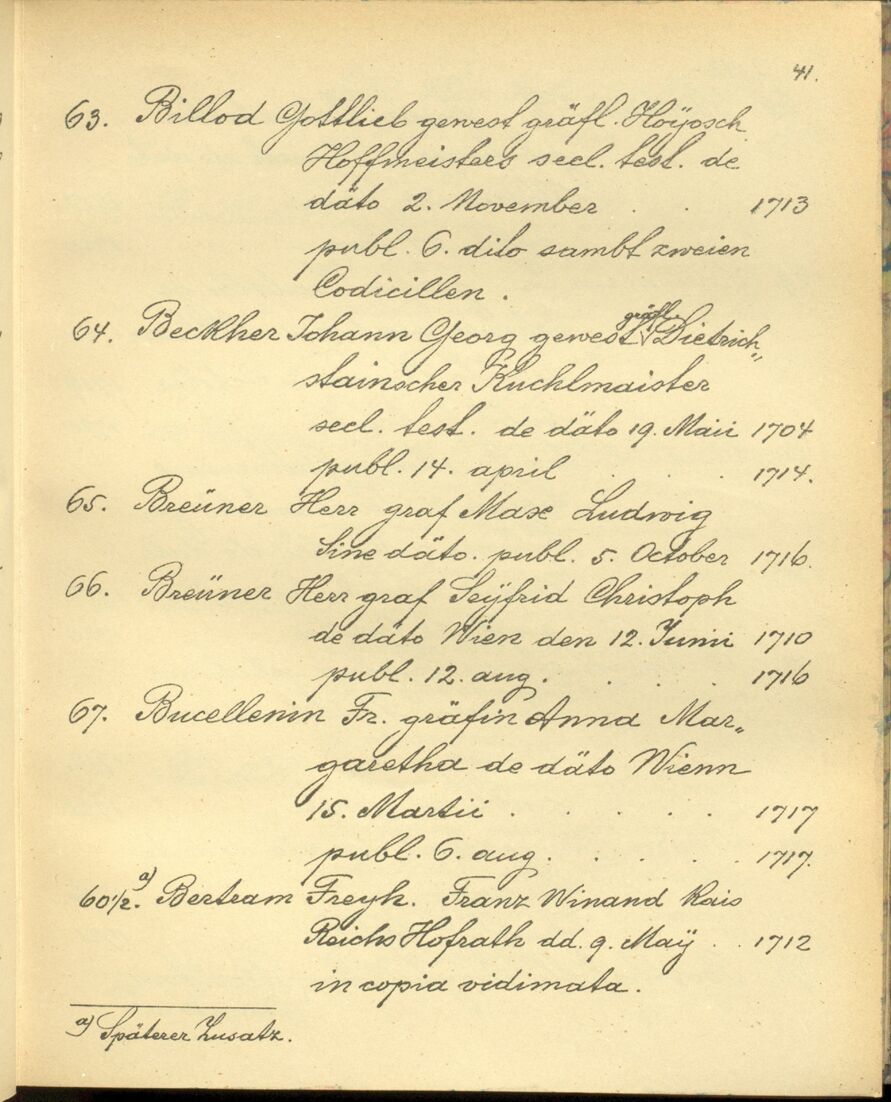 41.
63. Billod Gottlieb gewest gräfl. Hoÿosch
Hoffmeisters seel. test. de
däto 2. November . . 1713
publ. 6. dito sambt zweien
Codicillen.
gräfl.
64. Beckher Johann Georg gewest Dietrich„
stainscher Kuchlmaister
seel. test. de däto 19. Maii 1704
publ. 14. april . . 1714.
65. Breüner Herr graf Max Ludwig
Sine däto. publ. 5. October 1716.
66. Breüner Herr graf Seÿfrid Christoph
de däto Wien den 12. Junii 1710
publ. 12. aug. . . . 1716
67. Bucellenin Fr. gräfin Anna Mar„
garetha de däto Wienn
15. Martii . . . . . 1717
publ. 6. aug. . . . . 1717.
60 1/2. a) Bertram Freyh. Franz Winand Kais
Reichs Hofrath dd. 9. Maÿ . . 1712
in copia vidimata.
a) Späterer Zusatz.